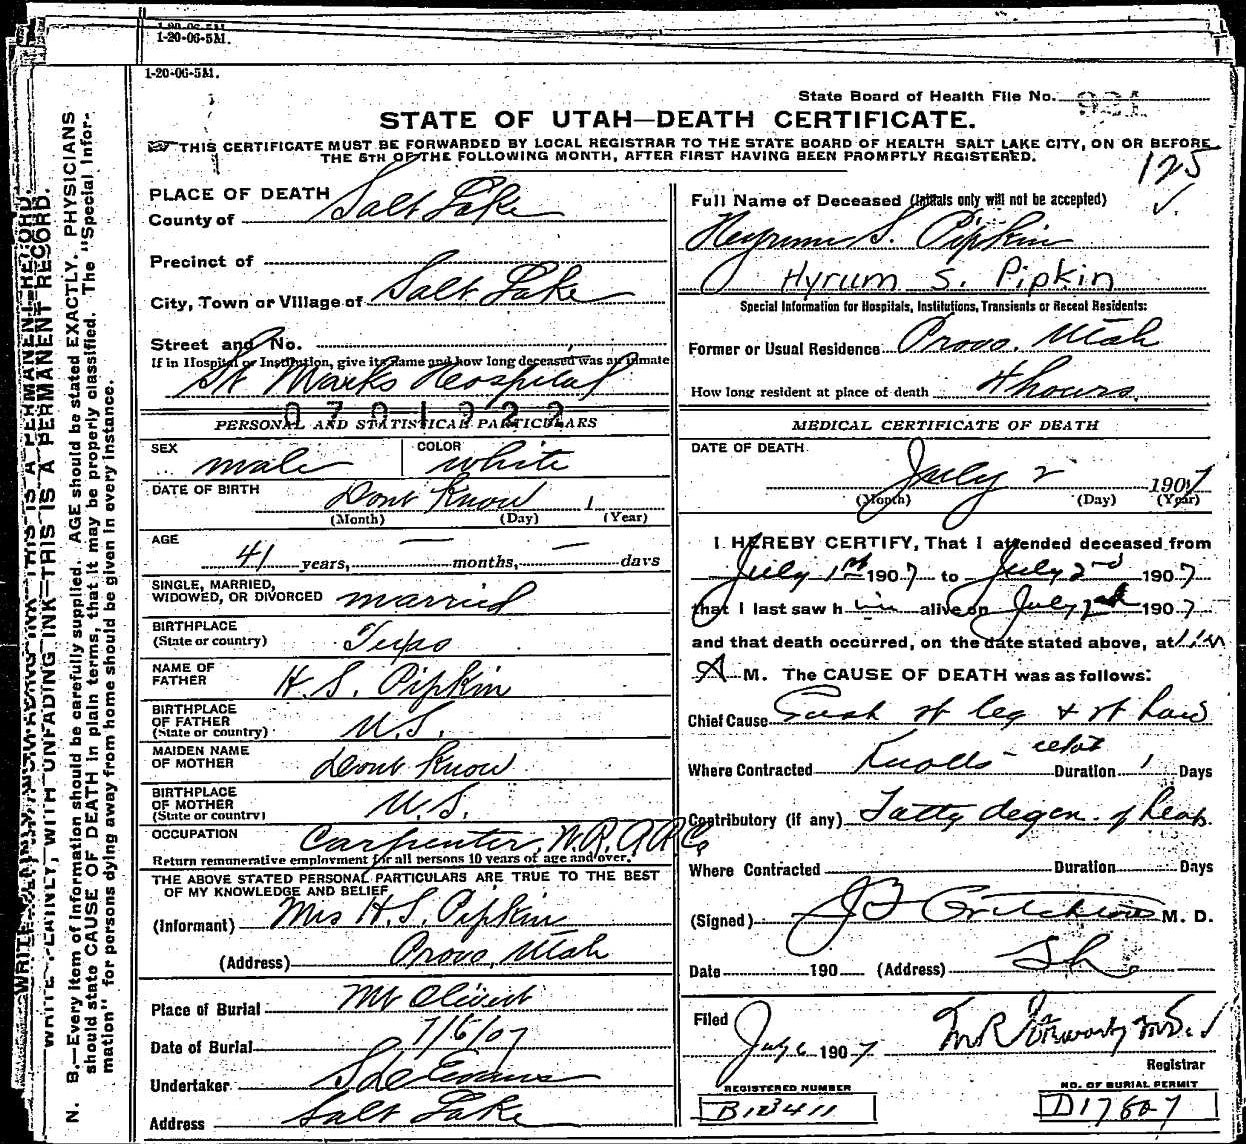 1-20-06-5M.
1-20-06-5M.
State Board of Health File No. 921
STATE OF UTAH—DEATH CERTIFICATE.
THIS CERTIFICATE MUST BE FORWARDED BY LOCAL REGISTRAR TO THE STATE BOARD OF HEALTH SALT LAKE CITY, ON OR BEFORE
THE 5TH OF THE FOLLOWING MONTH, AFTER FIRST HAVING BEEN PROMPTLY REGISTERED.
125
WRITE PLAINLY, WITH UNFADING INK—THIS IS A PERMANENT RECORD.
N. B.—Every item of information should be carefully supplied. AGE should be stated EXACTLY. PHYSICIANS
should state CAUSE OF DEATH in plain terms, that it may be properly classified. The "Special Infor-
mation" for persons dying away from home should be given in every instance.
PLACE OF DEATH
County of Salt Lake
Precinct of
City, Town or Village of Salt Lake
Street and No.
If in Hospital or Institution, give its name and how long deceased was an inmate
St Marks Hospital
0701922
PERSONAL AND STATISTICAL PARTICULARS
SEX male COLOR white
DATE OF BIRTH Dont Know 1
(Month) (Day) (Year)
AGE
41 years, — months, — days
SINGLE, MARRIED,
WIDOWED, OR DIVORCED married
BIRTHPLACE
(State or country) Texas
NAME OF
FATHER H. S. Pipkin
BIRTHPLACE
OF FATHER
(State or country) U.S.
MAIDEN NAME
OF MOTHER Dont Know
BIRTHPLACE
OF MOTHER
(State or country) U.S.
OCCUPATION Carpenter, W.R.
Return remunerative employment for all persons 10 years of age and over.
THE ABOVE STATED PERSONAL PARTICULARS ARE TRUE TO THE BEST
OF MY KNOWLEDGE AND BELIEF
(Informant) Mrs H. S. Pipkin
(Address) Provo, Utah
Place of Burial Mt Olivet
Date of Burial 7/6/07
Undertaker Evans
Address Salt Lake
Full Name of Deceased (Initials only will not be accepted)
Heyrum S. Pipkin
Hyrum S. Pipkin
Special Information for Hospitals, Institutions, Transients or Recent Residents:
Former or Usual Residence Provo, Utah
How long resident at place of death 4 hours.
MEDICAL CERTIFICATE OF DEATH
DATE OF DEATH
July 2 1907
(Month) (Day) (Year)
I HEREBY CERTIFY, That I attended deceased from
July 1st 1907 to July 2nd 1907
that I last saw him alive on July 2nd 1907
and that death occurred, on the date stated above, at
A M. The CAUSE OF DEATH was as follows:
Chief Cause rt leg & rt
Where Contracted Knolls - Utah Duration 1 Days
Contributory (if any) Fatty degen. of heart
Where Contracted Duration Days
(Signed) M. D.
Date 190 (Address) S L
Filed July 6 1907
Registrar
REGISTERED NUMBER
B12411
NO. OF BURIAL PERMIT
D17607